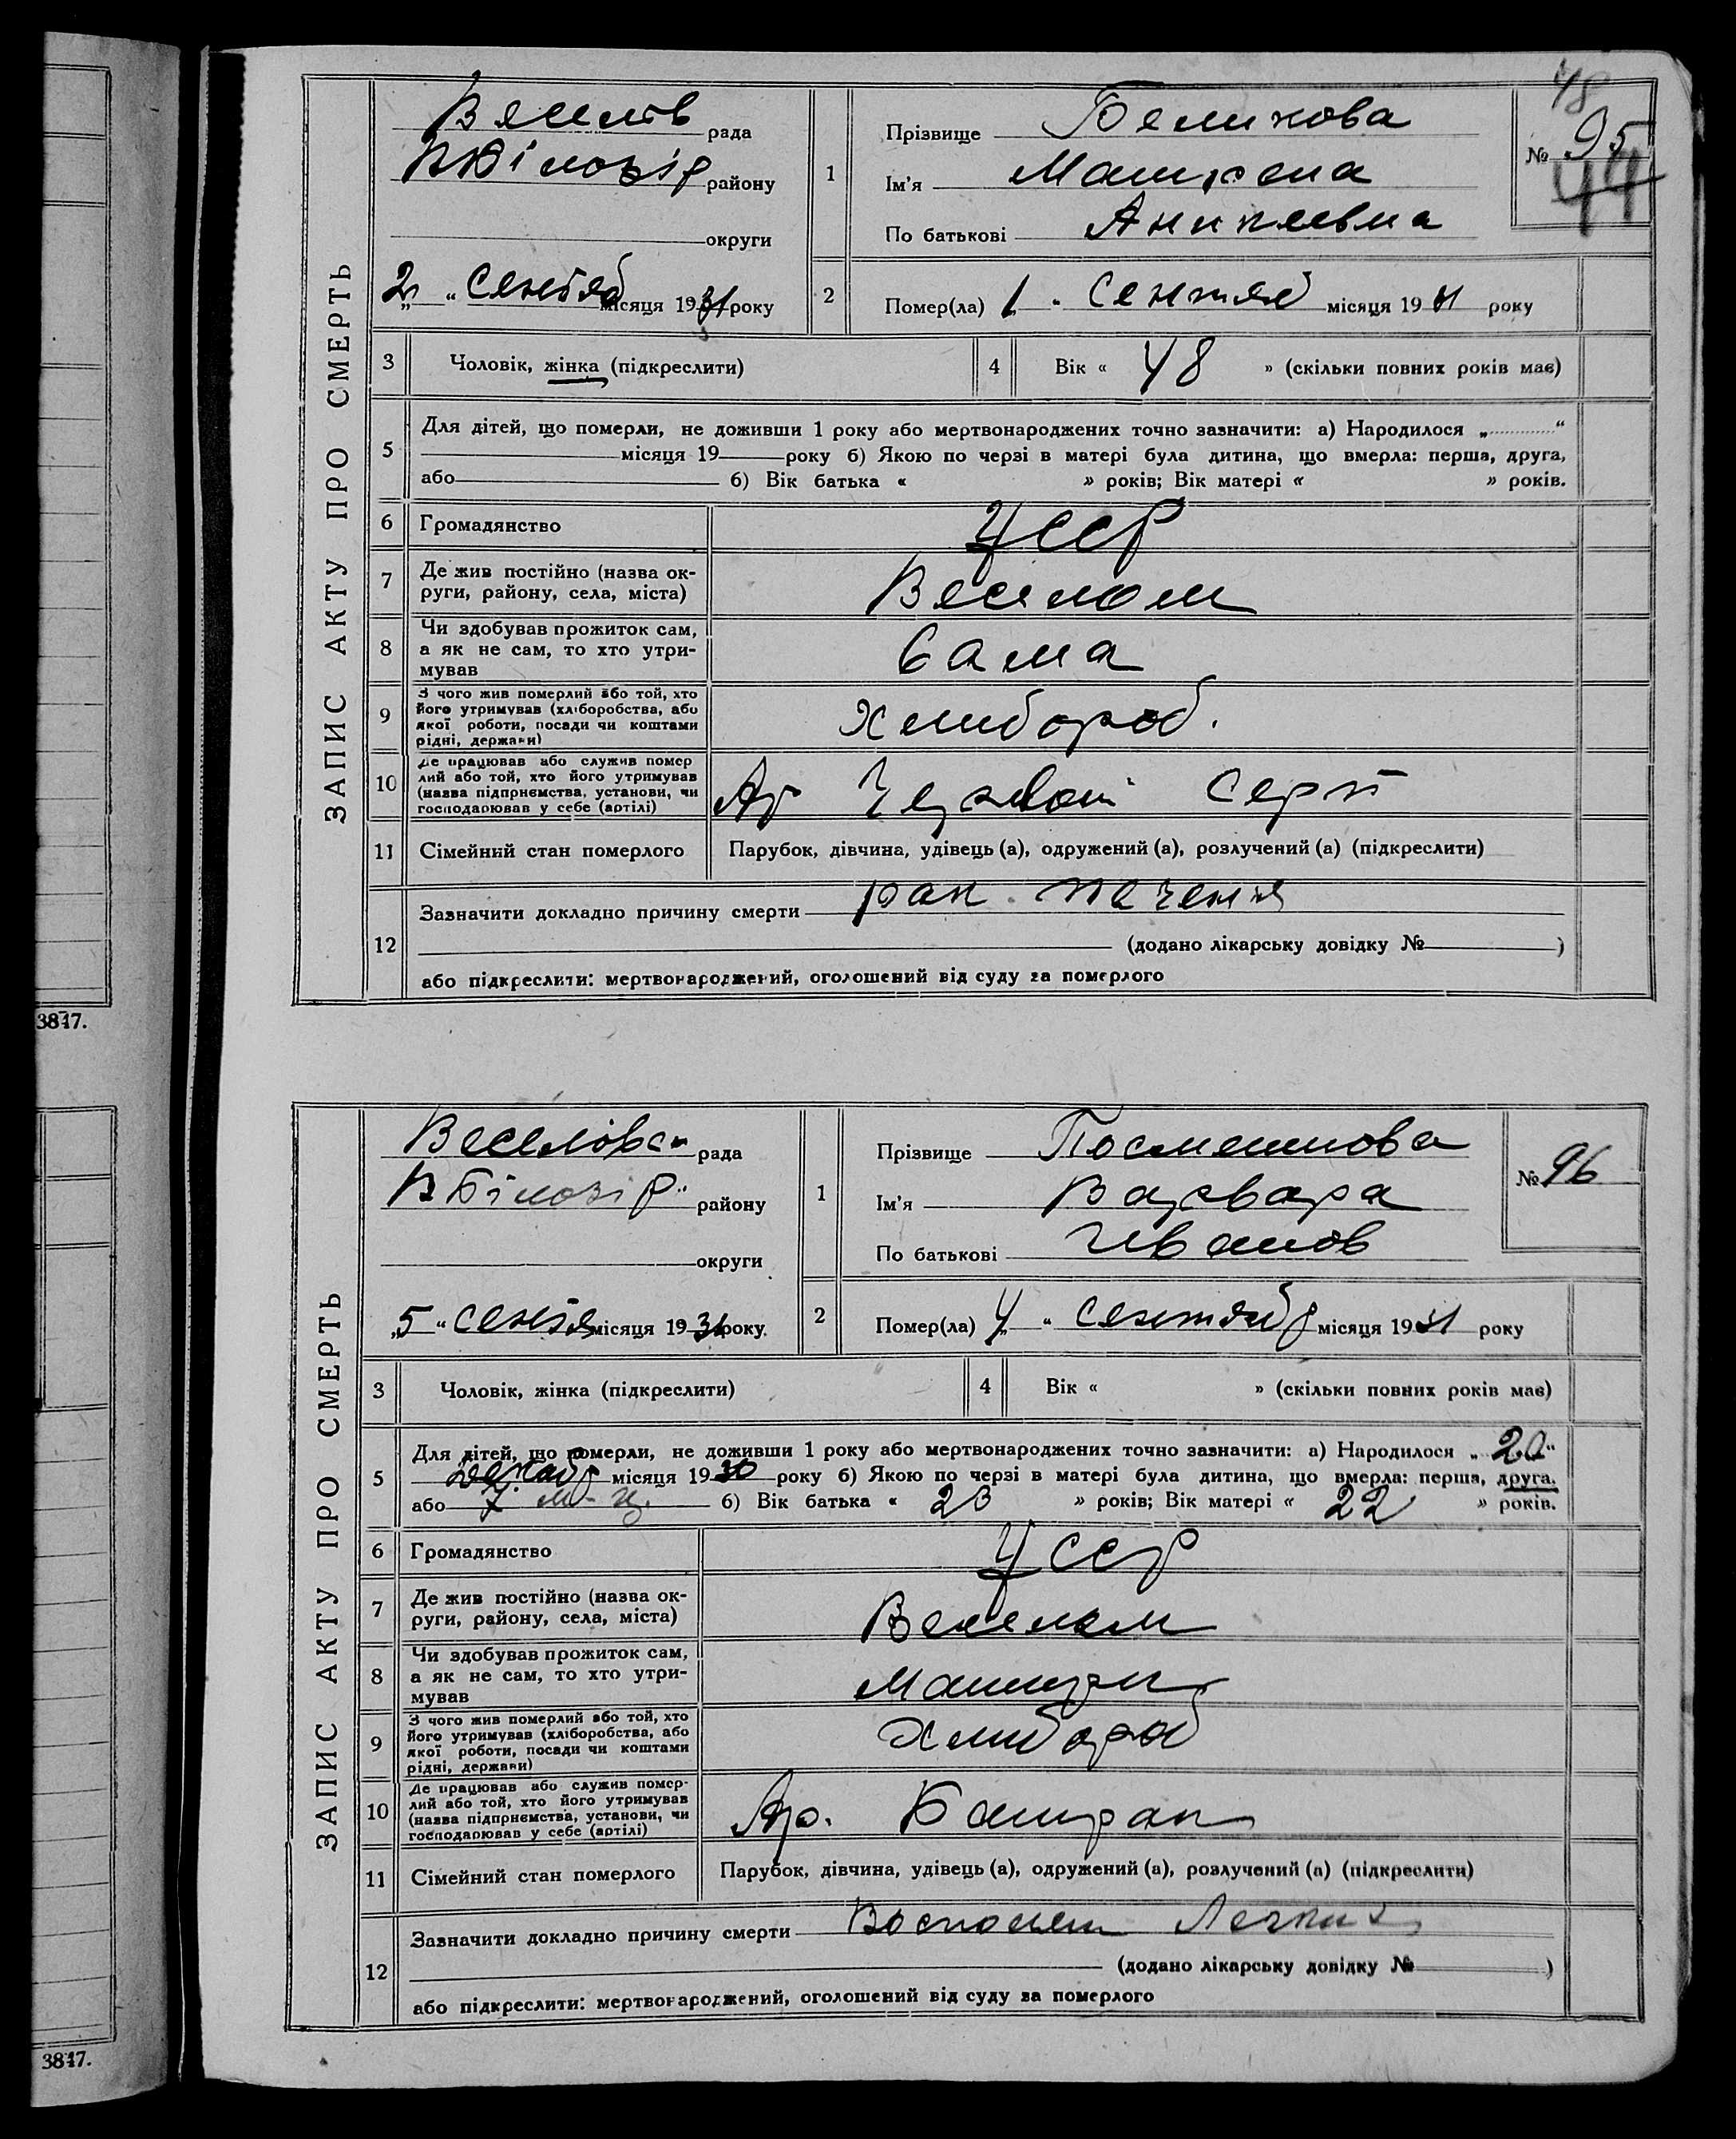 ЗАПИС АКТУ ПРО СМЕРТЬ
48
Веселів рада
району
округи
1
Прізвище Беликова
Ім'я
По батькові
№ 95
44
„2“ Сентяб місяця 1931 року
2
Помер(ла) 1 " Сентяб місяця 1931 року
3 Чоловік, жінка (підкреслити)
4 Вік « 48 » (скільки повних років має)
5 Для дітей, що померли, не доживши 1 року або мертвонароджених точно зазначити: а) Народилося „ “
місяця 19 року б) Якою по черзі в матері була дитина, що вмерла: перша, друга,
або б) Вік батька « » років; Вік матері « » років.
6 Громадянство УССР
7 Де жив постійно (назва ок-
руги, району, села, міста) Веселом
8 Чи здобував прожиток сам,
а як не сам, то хто утри-
мував Сама
9 З чого жив померлий або той, хто
його утримував (хліборобства, або
якої роботи, посади чи коштами
рідні, держави) Хлибороб.
10 Де працював або служив помер
лий або той, хто його утримував
(назва підприємства, установи, чи
господарював у себе (артілі) Ар Серп
11 Сімейний стан померлого Парубок, дівчина, удівець (а), одружений (а), розлучений (а) (підкреслити)
12 Зазначити докладно причину смерти рак печени
(додано лікарську довідку № )
або підкреслити: мертвонароджений, оголошений від суду за померлого
3847.
ЗАПИС АКТУ ПРО СМЕРТЬ
Веселовск рада
району
округи
1
Прізвище
Ім'я Варвара
По батькові Иванов
№ 96
„5“ сентя місяця 1931 року.
2
Помер(ла) 4 " сентябр місяця 1931 року
3 Чоловік, жінка (підкреслити)
4 Вік « » (скільки повних років має)
5 Для дітей, що померли, не доживши 1 року або мертвонароджених точно зазначити: а) Народилося „20“
Декабр місяця 1930 року б) Якою по черзі в матері була дитина, що вмерла: перша, друга.
або 7 м-ц. б) Вік батька « 23 » років; Вік матері « 22 » років.
6 Громадянство УССР
7 Де жив постійно (назва ок-
руги, району, села, міста) Веселом
8 Чи здобував прожиток сам,
а як не сам, то хто утри-
мував
9 З чого жив померлий або той, хто
його утримував (хліборобства, або
якої роботи, посади чи коштами
рідні, держави) Хлибороб
10 Де працював або служив помер-
лий або той, хто його утримував
(назва підприємства, установи, чи
господарював у себе (артілі) Ар. Батрак
11 Сімейний стан померлого Парубок, дівчина, удівець (а), одружений (а), розлучений (а) (підкреслити)
12 Зазначити докладно причину смерти Восполен Легких
(додано лікарську довідку № )
або підкреслити: мертвонароджений, оголошений від суду за померлого
3847.